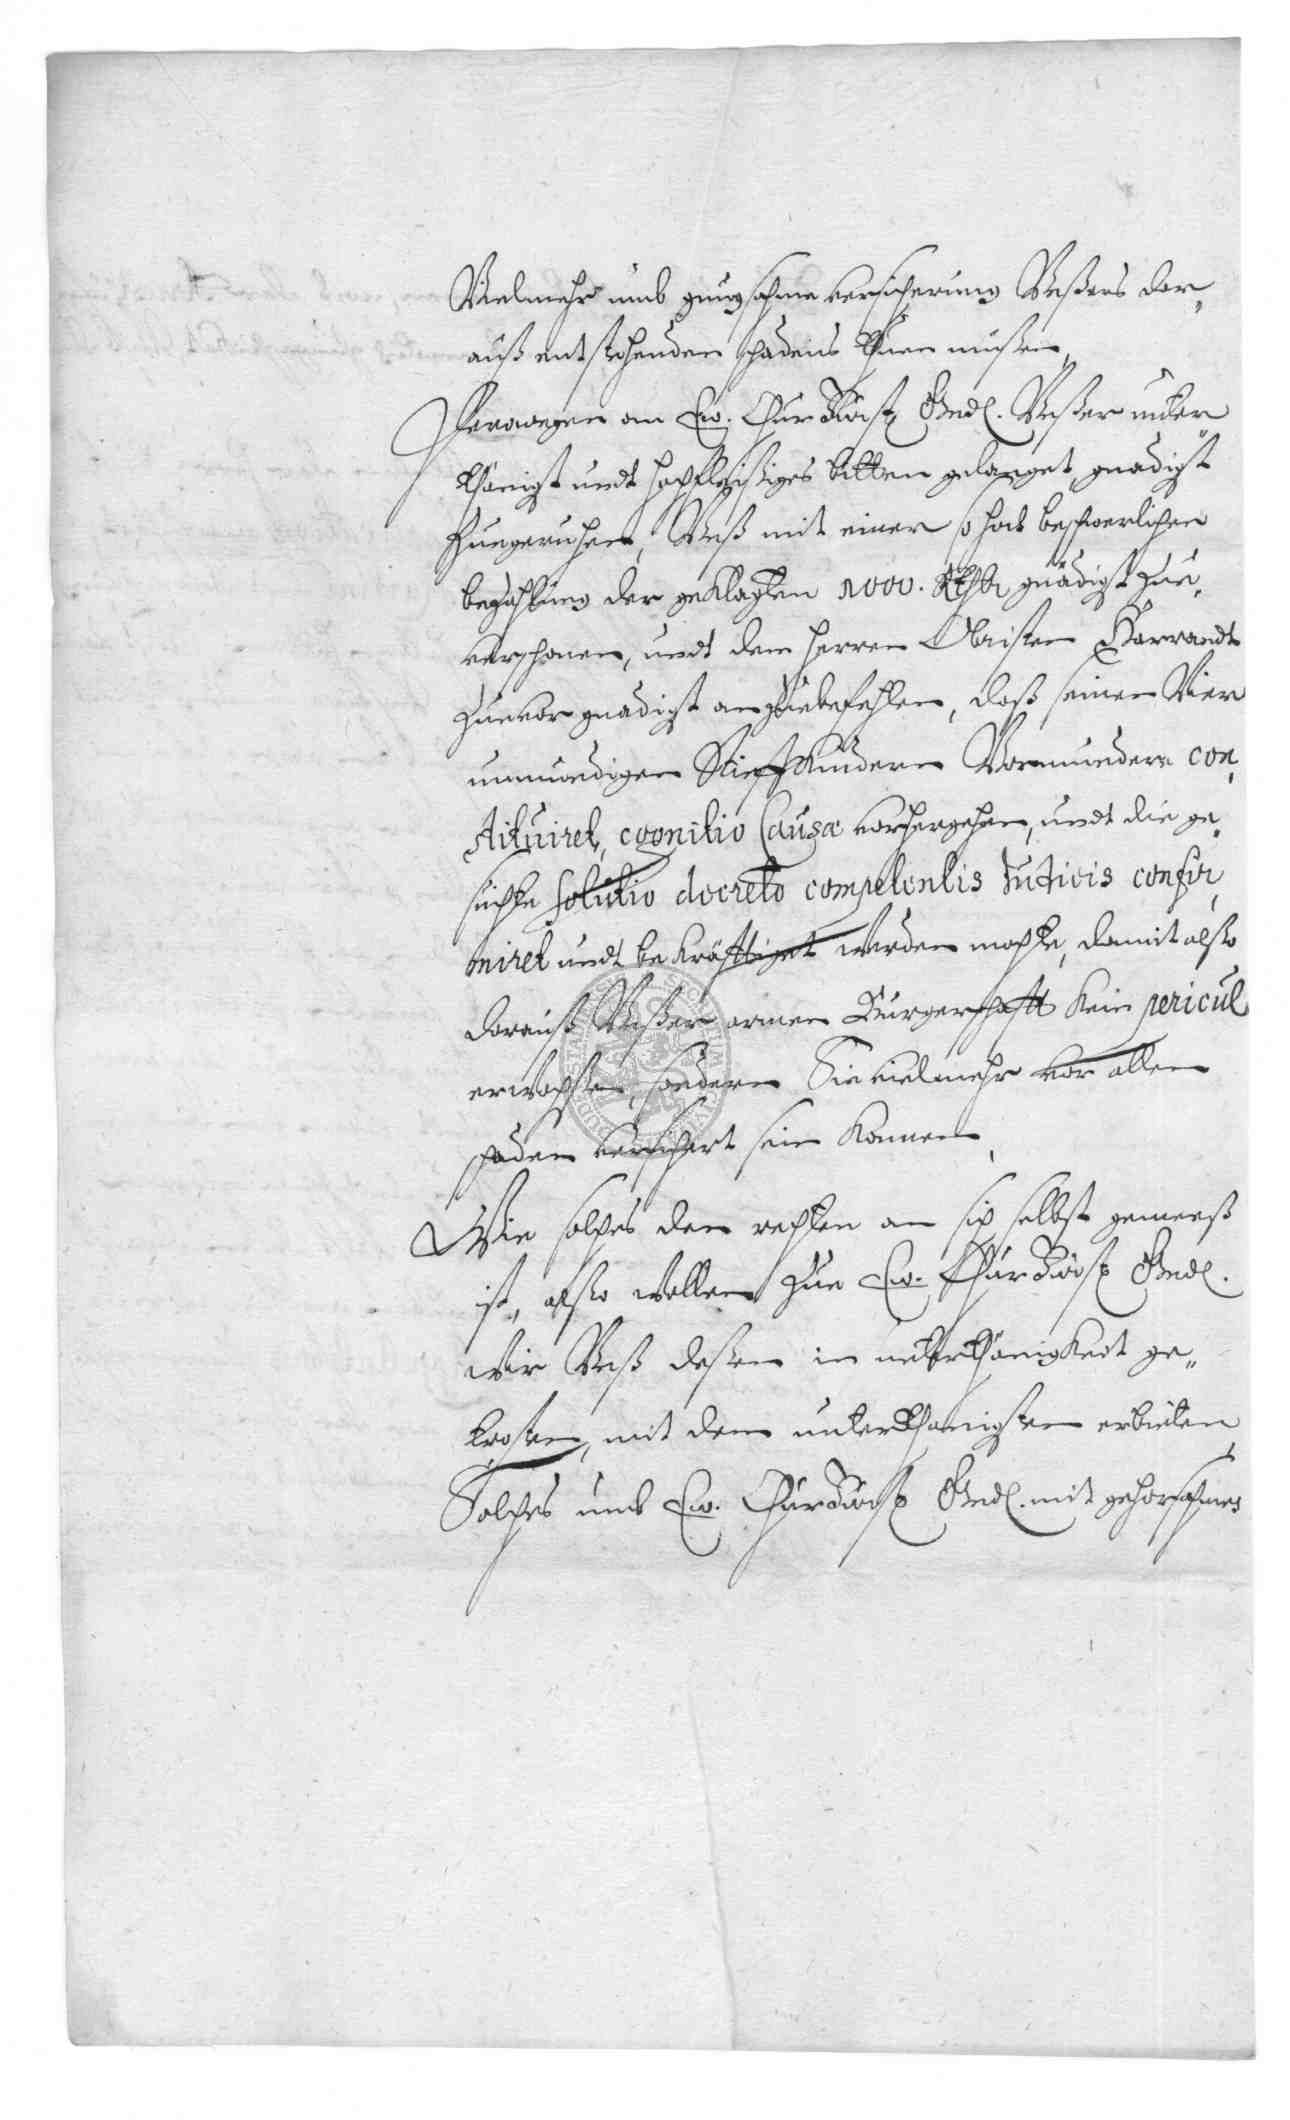 Vielmehr umb gnugsahme versicherung Unßers dar„
auß entstehenden schadens thuen müßen,
Derowegen an Ew. ChurFürstl. Gnd. Unßer unter„
thänigst undt hochfleißiges bitten gelanget, gnädigst
Zuegeruhen, Unß mit einer so hoch beschwerlichen
bezahlung der geklagten 1000. Rthlr gnädigst zue„
verschonen, undt dem Herren Obristen Harrandt
Zuevor gnädigst anzuebefehlen, daß seinen Vier
unmundigen Stieff Kindern Vormunder con„
stituiret, cognitio Causæ vorhergehen, undt die ge„
suchte solutio decreto competentis Iudicis confir„
miret undt bekräfftiget werden mochte, damit alßo
darauß Unßer armen Burgerschafft kein pericul
erwachßen, sondern Sie vielmehr vor allem
schaden versichert sein konnen,
Wie solches den rechten an sich selbst gemeeß
ist, alßo wollen Zue Ew. ChurFürstl. Gnd.
wir Unß deßen in unterthänigkeit ge„
trösten, mit dem unterthänigsten erbieten
Solches umb Ew. ChurFürstl. Gnd. mit gehorsahmes